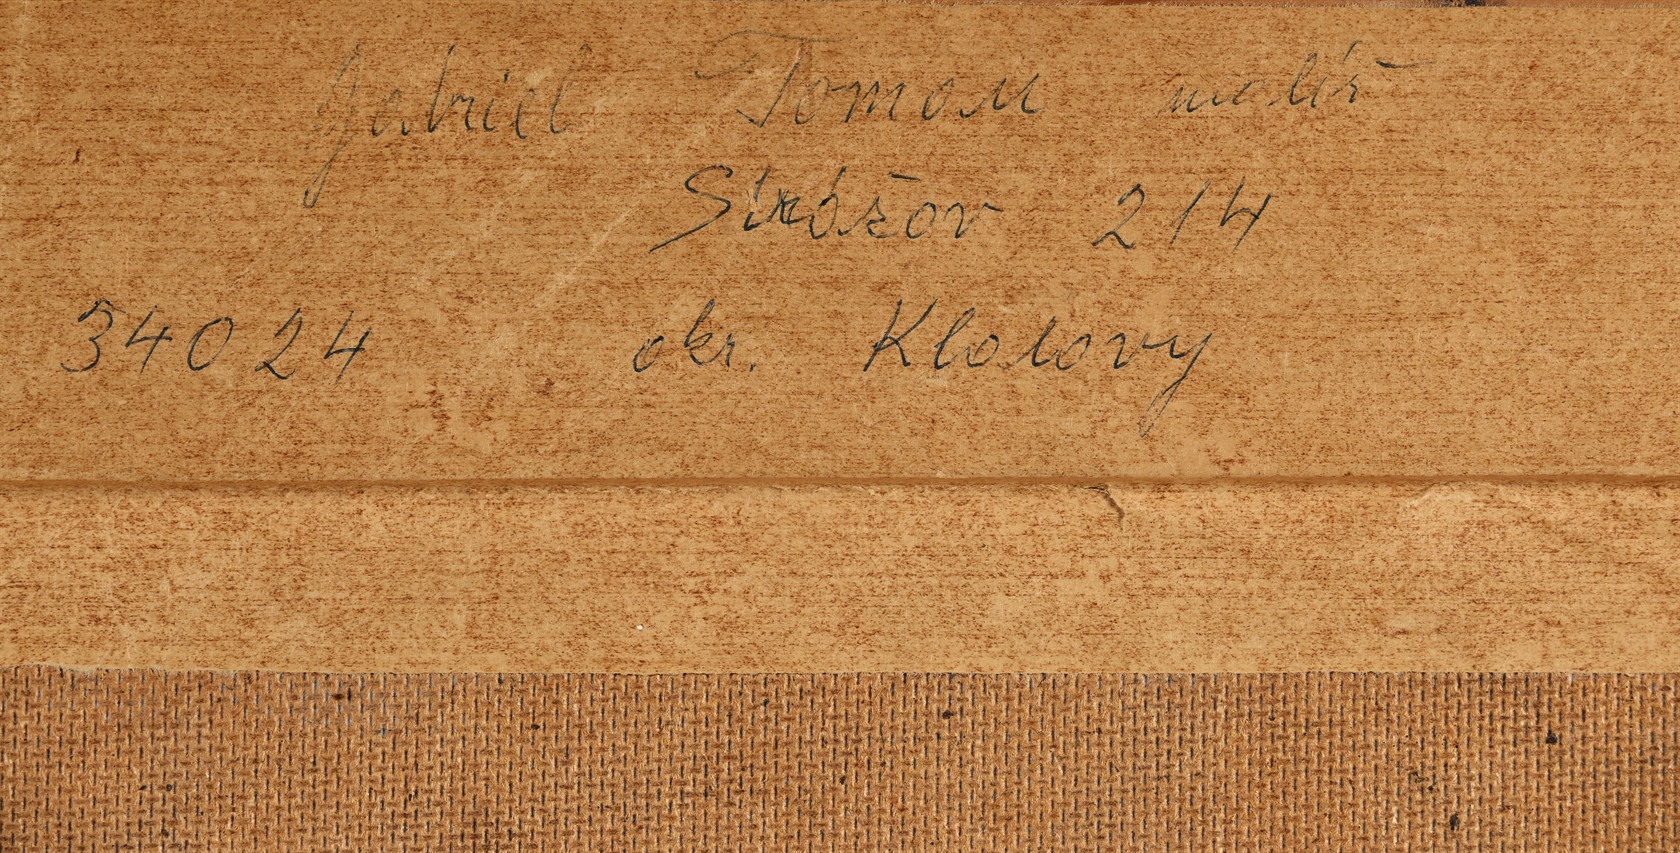 Gabriel Toman malíř
Strážov 214
34024 okr. Klatovy